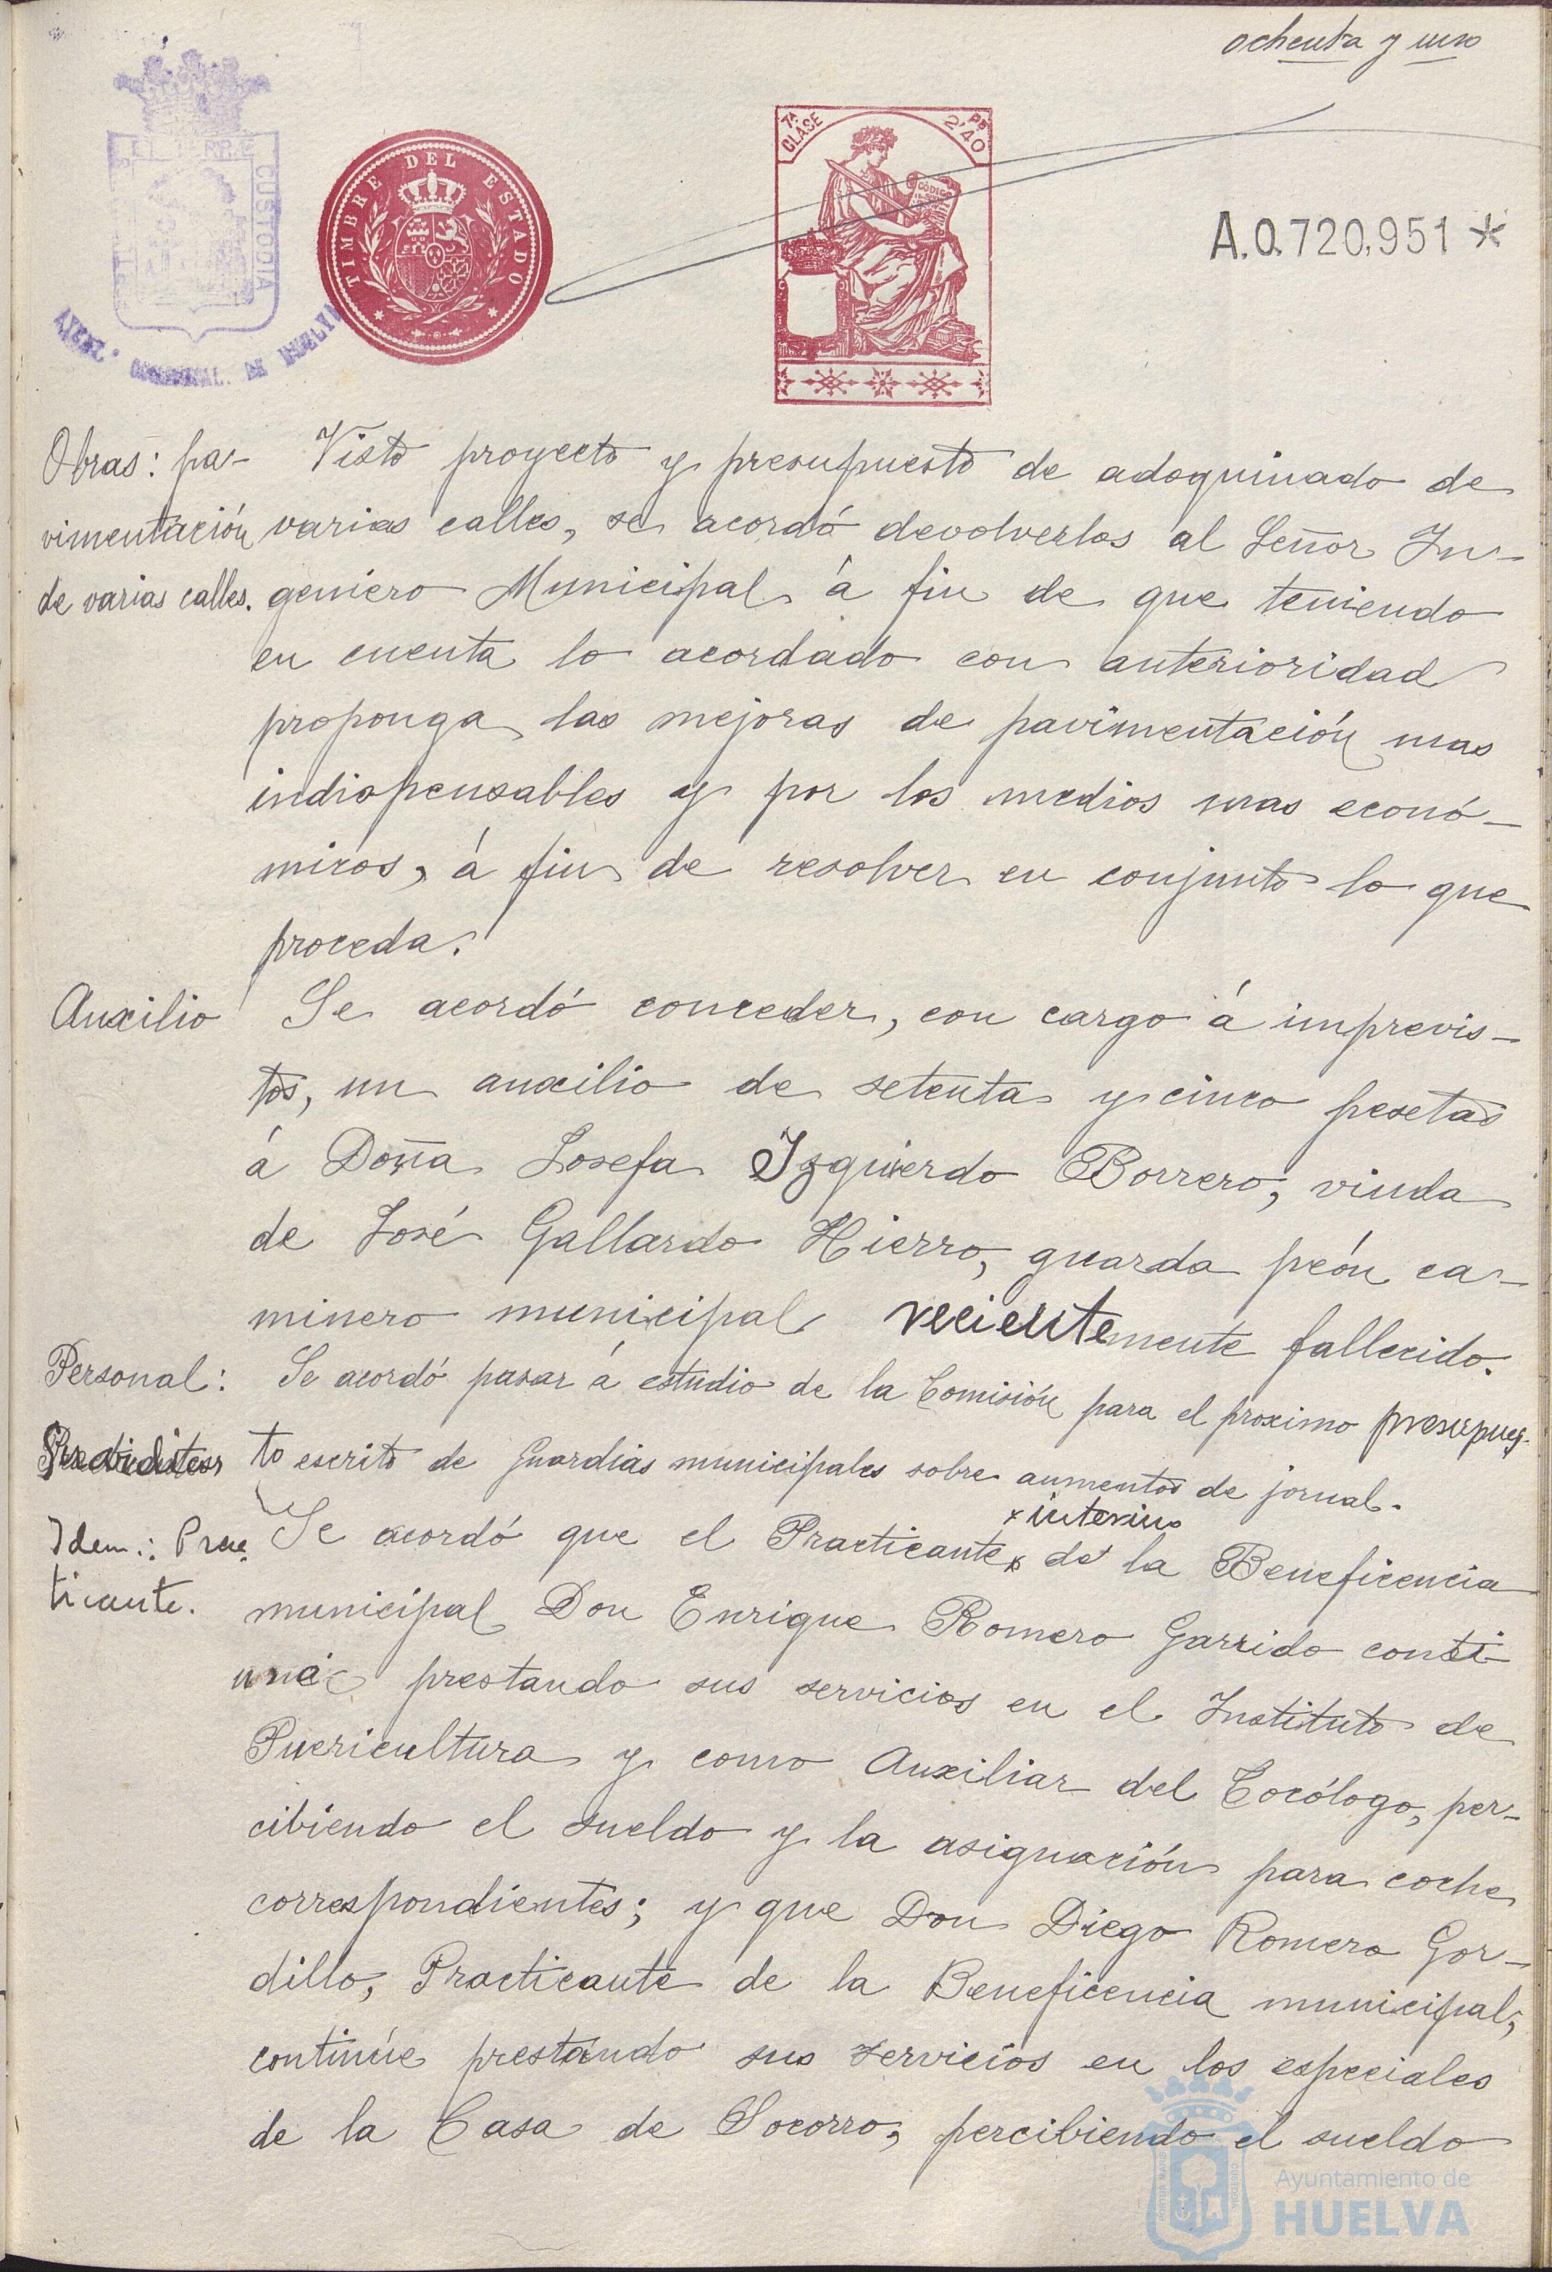 ochenta y uno
CUSTODIA
TIMBRE DEL ESTADO
7ª CLASE
Pˢ 2'40
CÓDIGO
A.0.720,951 *
AYUNT. DE HUELVA
Obras: pa- Visto proyecto y presupuesto de adoquinado de
vimentación varias calles, se acordó devolverlos al Señor In-
de varias calles. geniero Municipal á fin de que teniendo
en cuenta lo acordado con anterioridad
proponga las mejoras de pavimentación mas
indispensables y por los medios mas econó-
micos, á fin de resolver en conjunto lo que
proceda.
Auxilio Se acordó conceder, con cargo á imprevis-
tos, un auxilio de setenta y cinco pesetas
á Doña Josefa Izquierdo Borrero, viuda
de José Gallardo Hierro, guarda peón ca-
minero municipal recientemente fallecido.
Personal: Se acordó pasar á estudio de la Comisión para el proximo presupues-
to escrito de Guardias municipales sobre aumentos de jornal.
x interino
Idem.: Prac- Se acordó que el Practicante x de la Beneficencia
ticante. municipal Don Enrique Romero Garrido conti-
núe prestando sus servicios en el Instituto de
Puericultura y como Auxiliar del Tocólogo, per-
cibiendo el sueldo y la asignación para coche
correspondientes; y que Don Diego Romero Gor-
dillo, Practicante de la Beneficencia municipal,
continúe prestando sus servicios en los especiales
de la Casa de Socorro, percibiendo el sueldo
Ayuntamiento de
HUELVA